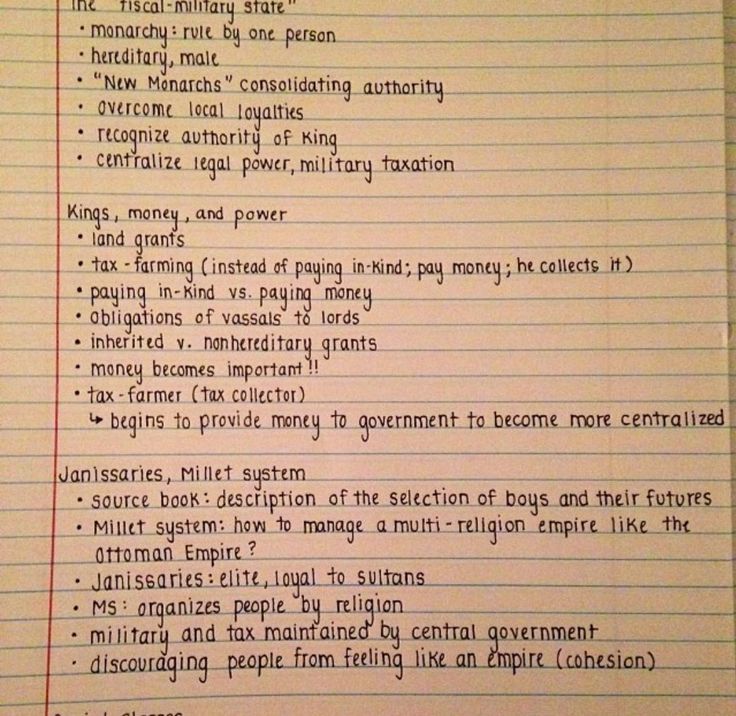 The "fiscal-military state"
• monarchy: rule by one person
• hereditary, male
• "New Monarchs" consolidating authority
• overcome local loyalties
• recognize authority of King
• centralize legal power, military taxation
Kings, money, and power
• land grants
• tax-farming (instead of paying in-kind; pay money; he collects it)
• paying in-kind vs. paying money
• obligations of vassals to lords
• inherited v. nonhereditary grants
• money becomes important!!
• tax-farmer (tax collector)
↳ begins to provide money to government to become more centralized
Janissaries, Millet system
• source book: description of the selection of boys and their futures
• Millet system: how to manage a multi-religion empire like the
Ottoman Empire?
• Janissaries: elite, loyal to sultans
• MS: organizes people by religion
• military and tax maintained by central government
• discouraging people from feeling like an empire (cohesion)